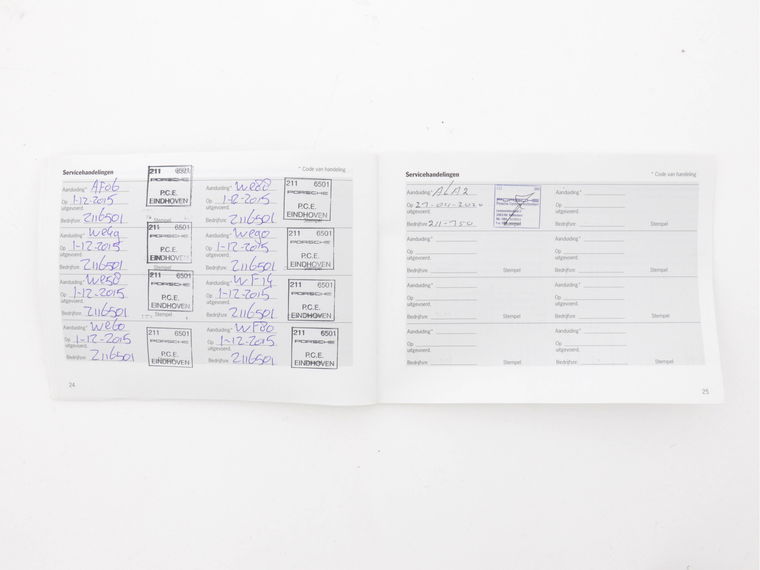 Servicehandelingen
* Code van handeling
Aanduiding* AF06
Op 1-12-2015
uitgevoerd.
Bedrijfsnr. 2116501
Stempel
211 6501
PORSCHE
P.C.E.
EINDHOVEN
Aanduiding* WE80
Op 1-12-2015
uitgevoerd.
Bedrijfsnr. 2116501
Stempel
211 6501
PORSCHE
P.C.E.
EINDHOVEN
Aanduiding*
Op 1-12-2015
uitgevoerd.
Bedrijfsnr. 2116501
Stempel
211 6501
PORSCHE
P.C.E.
EINDHOVEN
Aanduiding* WE90
Op 1-12-2015
uitgevoerd.
Bedrijfsnr. 2116501
211 6501
PORSCHE
P.C.E.
EINDHOVEN
Aanduiding* WE50
Op 1-12-2015
uitgevoerd.
Bedrijfsnr. 2116501
Stempel
211 6501
PORSCHE
P.C.E.
EINDHOVEN
Aanduiding* WF14
Op 1-12-2015
uitgevoerd.
Bedrijfsnr. 2116501
211 6501
PORSCHE
P.C.E.
EINDHOVEN
Aanduiding* WE60
Op 1-12-2015
uitgevoerd.
Bedrijfsnr. 2116501
211 6501
PORSCHE
P.C.E.
EINDHOVEN
Aanduiding* WF80
Op 1-12-2015
uitgevoerd.
Bedrijfsnr. 2116501
211 6501
PORSCHE
P.C.E.
EINDHOVEN
24
Servicehandelingen
* Code van handeling
Aanduiding* ALA2
Op
uitgevoerd.
Bedrijfsnr. 211-750
PORSCHE
Stempel
Aanduiding*
Op
uitgevoerd.
Bedrijfsnr.
Stempel
Aanduiding*
Op
uitgevoerd.
Bedrijfsnr.
Stempel
Aanduiding*
Op
uitgevoerd.
Bedrijfsnr.
Stempel
Aanduiding*
Op
uitgevoerd.
Bedrijfsnr.
Stempel
Aanduiding*
Op
uitgevoerd.
Bedrijfsnr.
Stempel
Aanduiding*
Op
uitgevoerd.
Bedrijfsnr.
Stempel
Aanduiding*
Op
uitgevoerd.
Bedrijfsnr.
Stempel
25